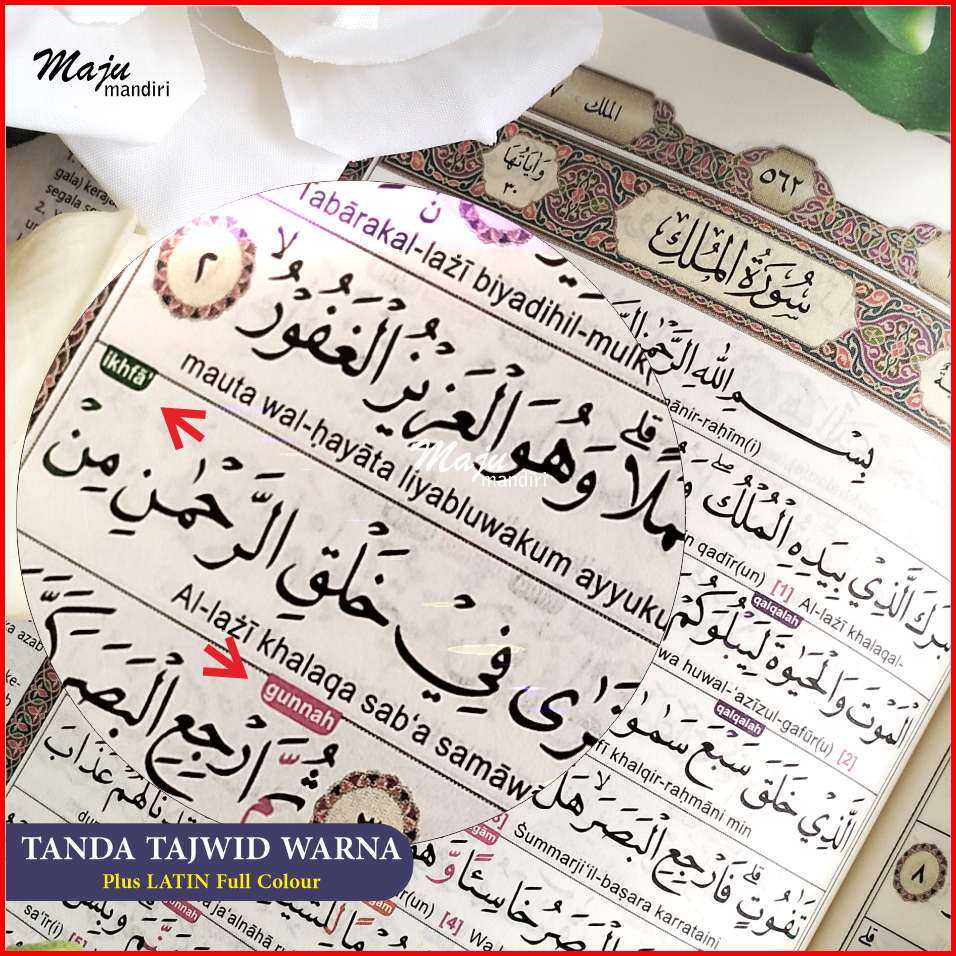 Maju
mandiri
الملك
٥٦٢
وَاٰيَاتُهَا
٣٠
سُوْرَةُ الْمُلْكِ
gala) keraja
2.
بِسْمِ اللّٰهِ الرَّحْمٰنِ
ānir-raḥīm(i)
Tabārakal-lażī biyadihil-mulk
٢
وَهُوَ الْعَزِيْزُ الْغَفُوْرُۙ
mauta wal-ḥayāta liyabluwakum ayyuku
ikhfā'
فِيْ خَلْقِ الرَّحْمٰنِ مِنْ
Al-lażī khalaqa sab‘a samāw
gunnah
ارْجِعِ الْبَصَرَ
Maju
mandiri
الَّذِيْ بِيَدِهِ الْمُلْكُ
n qadīr(un) [1] Al-lażī khalaqal-
qalqalah
الْمَوْتَ وَالْحَيٰوةَ لِيَبْلُوَكُمْ
wa huwal-‘azīzul-gafūr(u) [2]
qalqalah
الَّذِيْ خَلَقَ سَبْعَ
fī khalqir-raḥmāni min
تَفٰوُتٍۗ فَارْجِعِ الْبَصَرَۙ هَلْ
Ṡummarji‘il-baṣara karrataini
٨
خَاسِئًا وَّ
(un) [4] Wa
gunnah
ja‘alnāhā
sa‘īr(i) [5]
عَذَابَ
TANDA TAJWID WARNA
Plus LATIN Full Colour